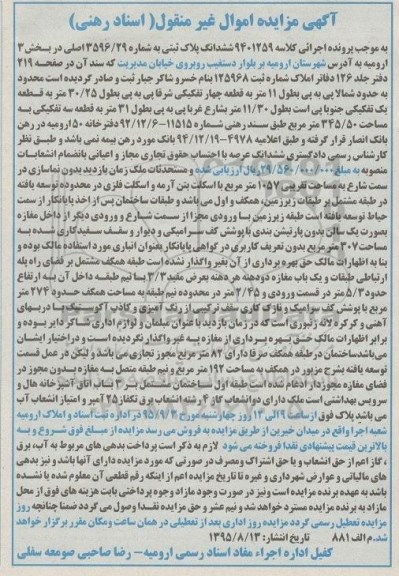 آگهی مزایده اموال غیر منقول( اسناد رهنی)
به موجب پرونده اجرائی کلاسه ۹۴۰۱۲۵۹ ششدانگ پلاک ثبتی به شماره ۳۵۹۶/۲۹ اصلی در بخش ۳
ارومیه به آدرس شهرستان ارومیه بر بلوار دستغیب روبروی خیابان مدیریت که سند آن در صفحه ۲۱۹
دفتر جلد ۱۲۶ دفاتر املاک شماره ثبت ۱۲۵۹۶۸ بنام خسرو شاکر جبار ثبت و صادر گردیده است محدود
به حدود شمالا پی به پی بطول ۱۱ متر به قطعه چهار تفکیکی شرقا پی به پی بطول ۳۰/۲۵ متر به قطعه
یک تفکیکی جنوبا پی است بطول ۱۱/۳۰ متر بشارع غربا پی به پی بطول ۳۱ متر به قطعه سه تفکیکی به
مساحت ۳۴۵/۵۰ متر مربع طبق سند رهنی شماره ۱۱۵۱۵-۹۲/۱۲/۶ دفترخانه ۱۵۰ ارومیه در رهن
بانک انصار قرار گرفته و طبق اعلامیه ۴۹۷۸-۹۴/۱۲/۱۹ بانک مورد رهن بیمه نمی باشد و طبق نظر
کارشناس رسمی دادگستری ششدانگ عرصه با احتساب حقوق تجاری مجاز و اعیانی بانضمام انشعابات
منصوبه به مبلغ ریال ارزیابی شده و مستحدثات ملک زمان بازدید بدون نماسازی در
سمت شارع به مساحت تقریبی ۱۰۵۷ متر مربع با اسکلت بتن آرمه و اسکلت فلزی در محدوده توسعه یافته
در طبقه مشتمل بر طبقات زیرزمین، همکف و اول می باشد و طبقات ساختمان پس از اخذ پایانکار از سمت
حیاط توسعه یافته است طبقه زیرزمین با ورودی مجزا از سمت شارع و ورودی دیگر از داخل مغازه
بصورت یک سالن بدون پارتیشن بندی با پوشش کف سرامیکی و دیوار و سقف سفیدکاری شده به
مساحت ۳۰۷ متر مربع بدون تعریف کاربری در گواهی پایانکار بعنوان انباری مورد استفاده مالک بوده و
بنا به اظهارات مالک حق بهره برداری از آن بغیر واگذار نشده است طبقه همکف مشتمل بر فضای راه پله
ارتباطی طبقات و یک باب مغازه دودهنه هر دهنه بعرض مفید ۳/۳ با نیم طبقه داخل آن به ارتفاع
حدود ۵/۳ متر در قسمت ورودی و ۲/۴۵ متر در محدوده نیم طبقه به مساحت همکف حدود ۲۷۴ متر
مربع با پوشش کف سرامیک و نازک کاری سقف ترکیبی از رنگ آمیزی و کاذب آکروستیک با دربهای
آهنی و کرکره لانه زنبوری است که در زمان بازدید با عنوان مبلمان و لوازم اداری شاکر دایر بوده و
برابر اظهارات مالک حق بهره برداری از مغازه به غیر واگذار نگردیده است و در اختیار ایشان
می باشد ساختمان در طبقه همکف صرفا دارای ۸۲ متر مربع مجوز تجاری می باشد و لیکن در عمل قسمت
توسعه یافته بشرح مزبور در همکف به مساحت ۱۹۲ متر مربع و نیم طبقه متصل به مغازه بدون مجوز در
فضای مغازه مجوزدار ادغام شده است طبقه اول ساختمان مشتمل بر باب اتاق آشپزخانه هال و
سرویس بهداشتی است ملک دارای دو انشعاب گاز ۴ رشته انشعاب برق تکفاز ۲۵ آمپر و امتیاز انشعاب آب
می باشد پلاک فوق از ساعت ۹ الی ۱۲ روز چهارشنبه مورخ ۹۵/۹/۳ در اداره ثبت اسناد و املاک ارومیه
شعبه اجرا واقع در میدان خیبرین از طریق مزایده به فروش می رسد مزایده از مبلغ فوق شروع و به
بالاترین قیمت پیشنهادی نقدا فروخته می شود لازم به ذکر است پرداخت بدهی های مربوط به آب، برق
، گاز اعم از حق انشعاب و یا حق اشتراک و مصرف در صورتی که مورد مزایده دارای آنها باشد و نیز بدهی
های مالیاتی و عوارض شهرداری و غیره تا تاریخ مزایده اعم از اینکه رقم قطعی آن معلوم شده یا نشده
باشد به عهده برنده مزایده است و نیز در صورت وجود مازاد وجوه پرداختی بابت هزینه های فوق از محل
مازاد به برنده مزایده مسترد خواهد شد و نیم عشر و حق مزایده نقدا وصول می گردد ضمنا چنانچه روز
مزایده تعطیل رسمی گردد مزایده روز اداری بعد از تعطیلی در همان ساعت و مکان مقرر برگزار خواهد
شد. م الف ۸۸۱ تاریخ انتشار: ۱۳۹۵/۸/۱۳
کفیل اداره اجراء مفاد اسناد رسمی ارومیه- رضا صاحبی صومعه سفلی